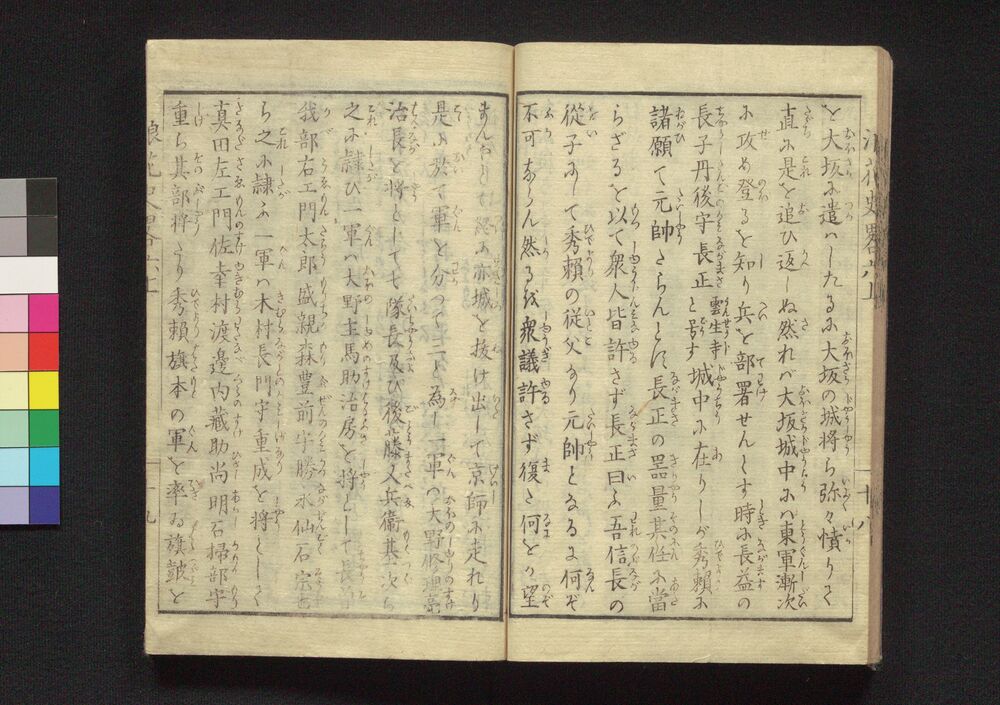 を大坂に遣ハしたるに大坂の城将ら弥々憤りて
直に是を追ひ返しぬ然れバ大坂城中にハ東軍漸次
に攻め登るを知り兵を部署せんとす時に長益の
長子丹後守長正雲生寺と号す城中に在りしが秀頼に
諸願て元帥たらんとに長正の器量其任に當
らざるを以て衆人皆許さず長正曰ふ吾信長の
従子にして秀頼の従父なり元帥となるに何ぞ
不可ならん然るを衆議許さず復た何をか望
まんやとて終に亦城を抜け出して京師に走れり
是に於て軍を分つて二と為し一軍ハ大野修理亮
治長を将として七隊長及び後藤又兵衛基次ら
之に隷ひ一軍ハ大野主馬助治房を将として長曽
我部右エ門太郎盛親森豊前守勝永仙石宗也
ら之に隷ふ一軍ハ木村長門守重成を将として
真田左エ門佐幸村渡邊内蔵助尚明石掃部守
重ら其部将たり秀頼旗本の軍を率ゐ旗皷を
十八
十九